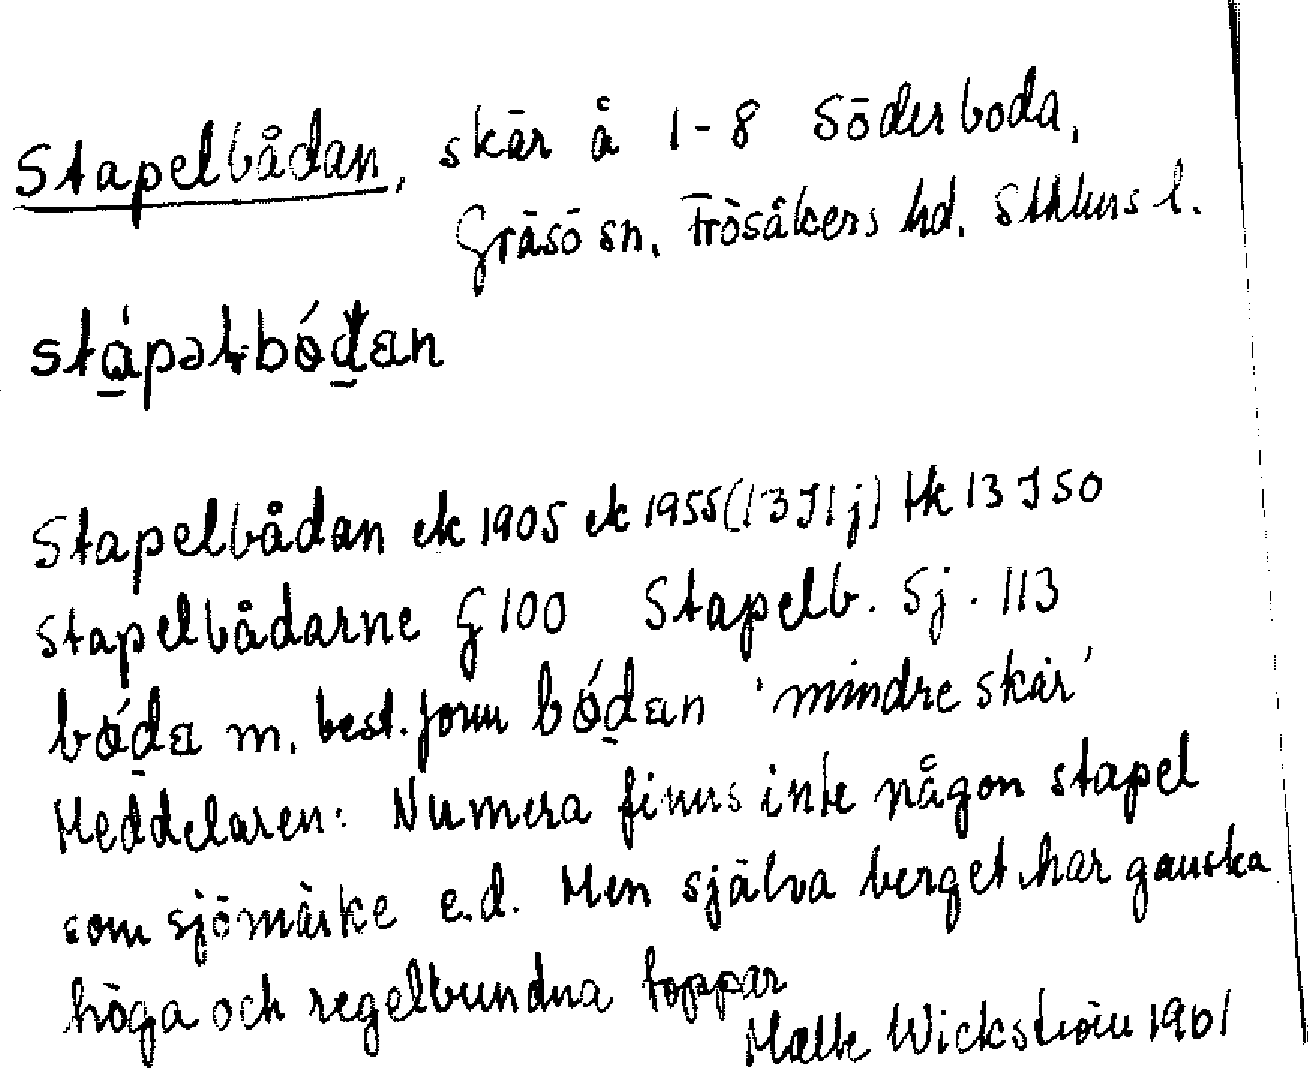 Stapelbådan, skär å 1-8 Söderboda,
Gräsö sn. Frösåkers hd. Sthlms l.
Stapelbådan ek 1905 ek 1955 (13 I 1 j) tk 13 I SO
Stapelbådarne G 100 Stapelb. Sj. 113
m. best. form 'mindre skär'
Meddelaren: Numera finns inte någon stapel
som sjömärke e.d. Men själva berget har ganska
höga och regelbundna toppar
Wickström 1961